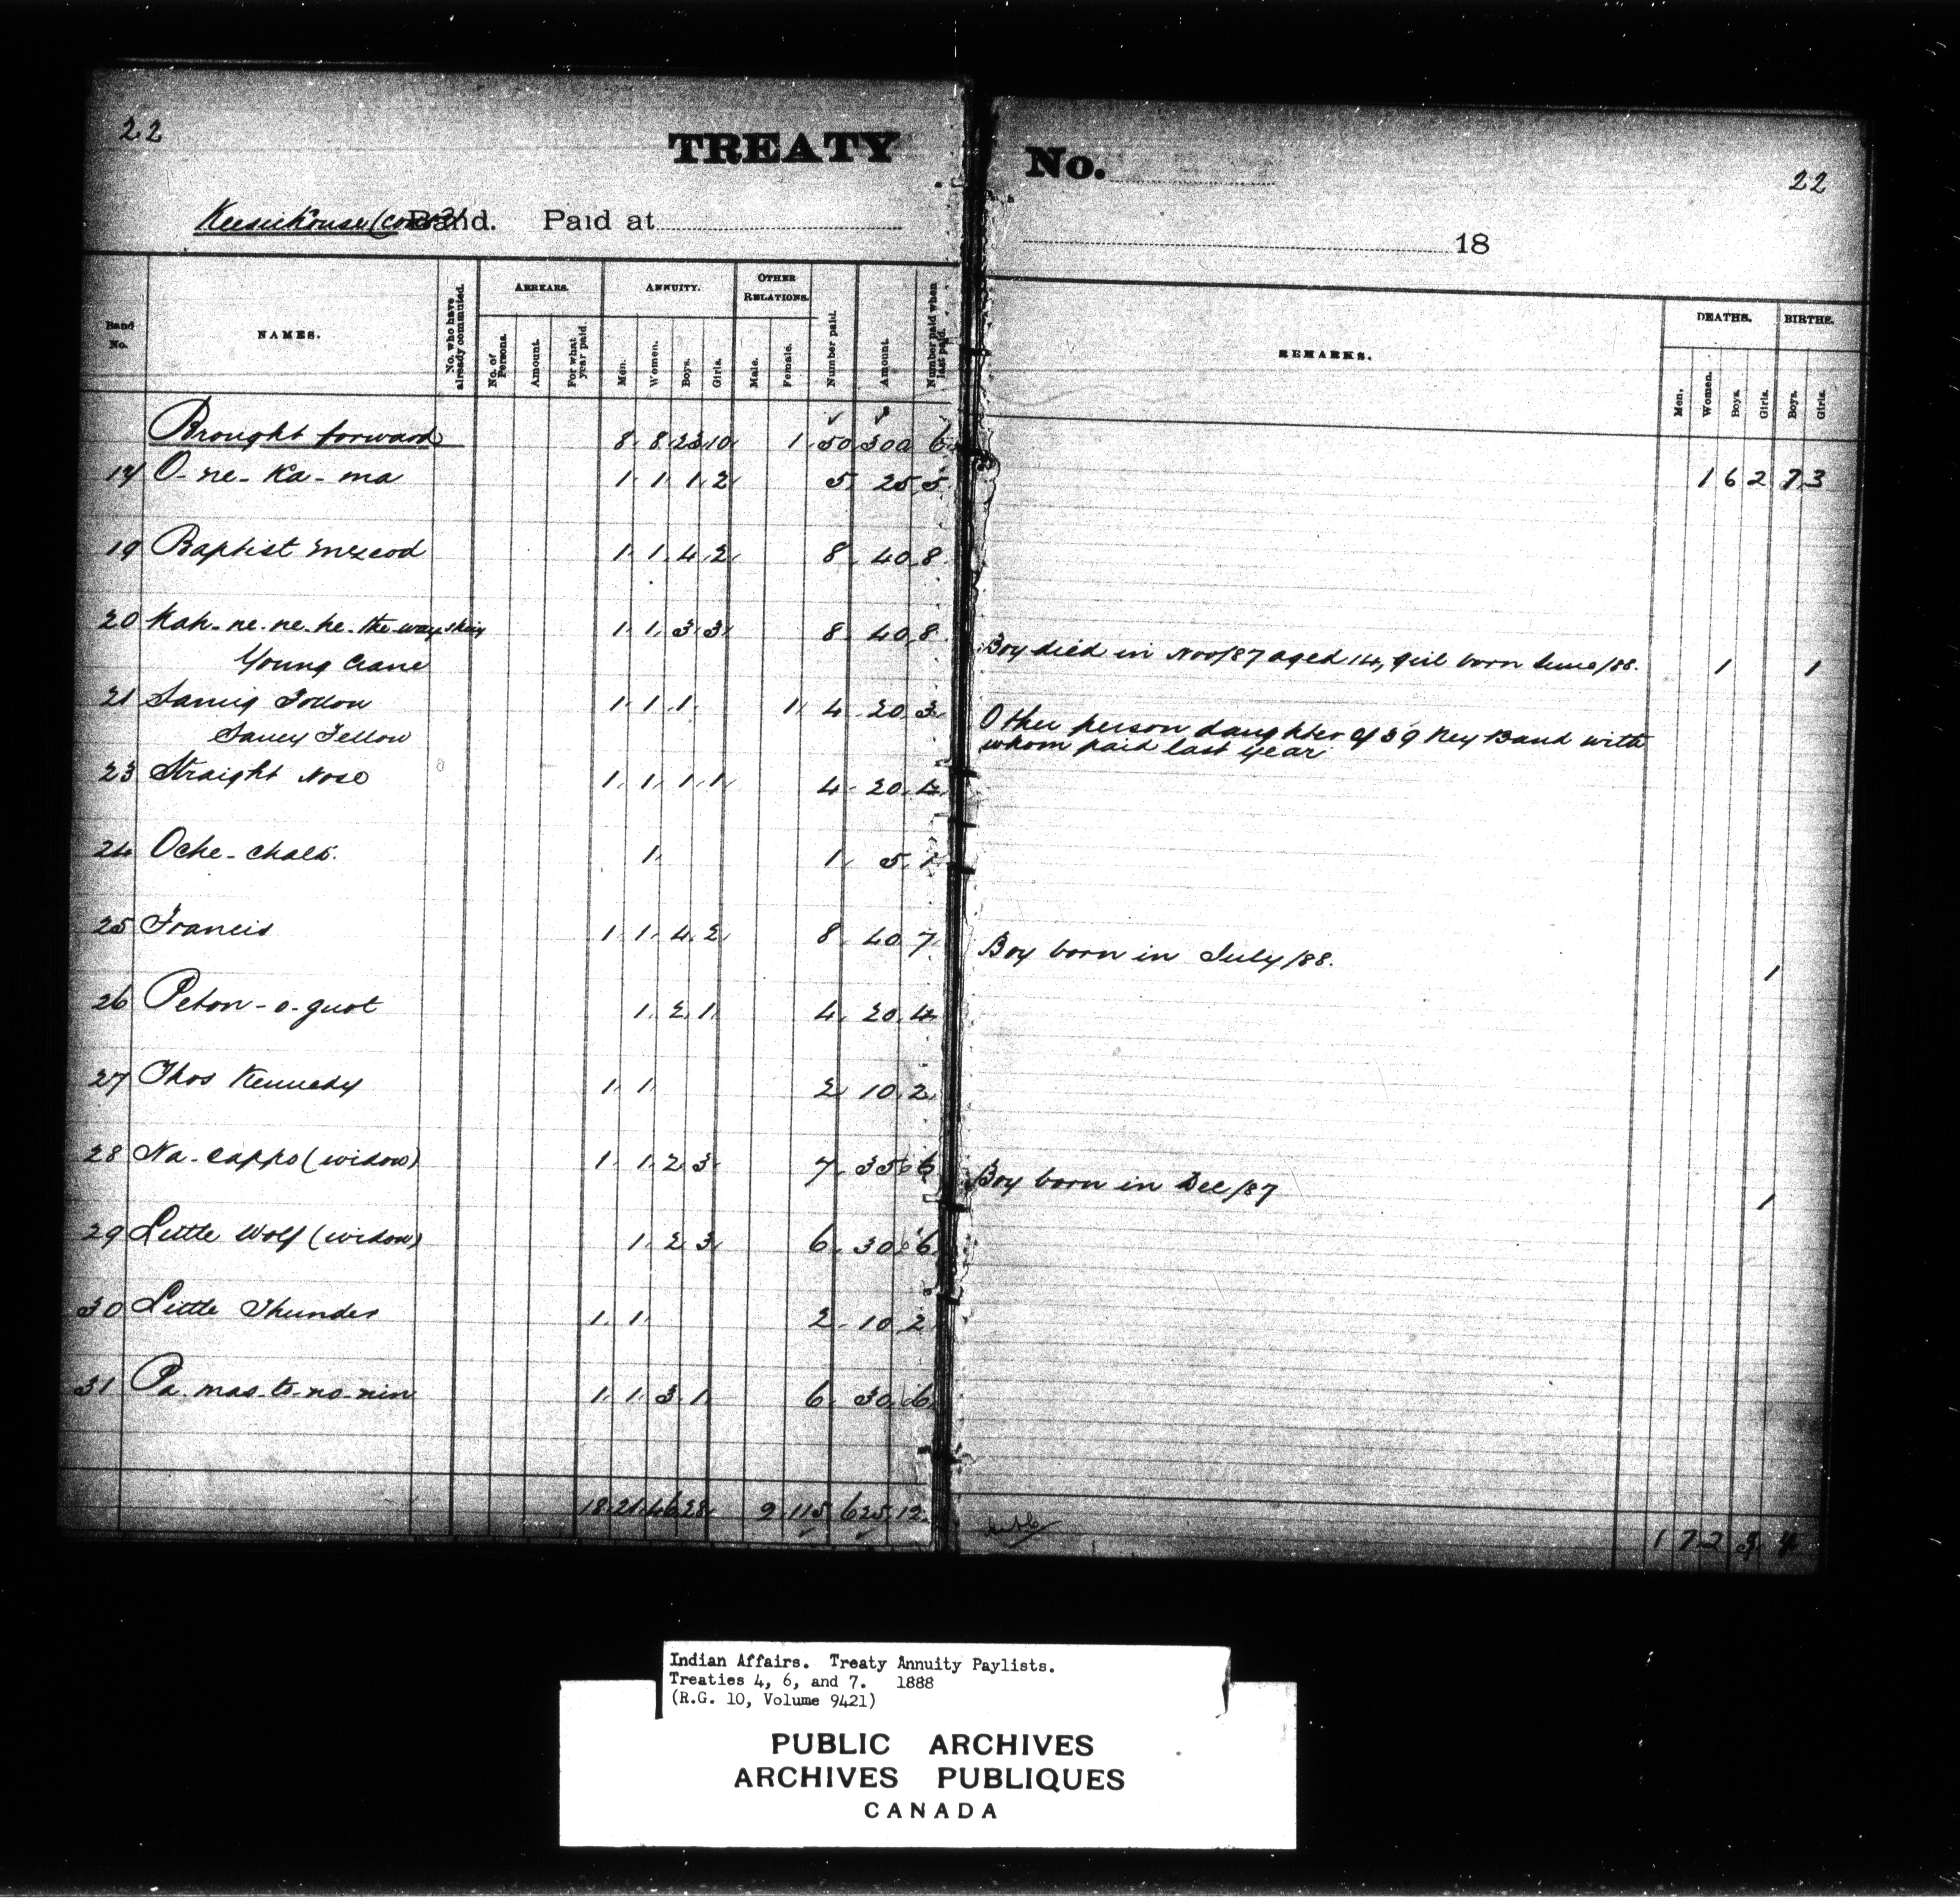 22
TREATY No.
22
Band. Paid at
18
Band No.
NAMES.
No. who have already commuted.
ARREARS.
No. of Persons.
Amount.
For what year paid.
ANNUITY.
Men.
Women.
Boys.
Girls.
OTHER RELATIONS.
Male.
Female.
Number paid.
Amount.
Number paid when last paid.
REMARKS.
DEATHS.
Men.
Women.
Boys.
Girls.
BIRTHS.
Boys.
Girls.
Brought forward 8 8 23 10 1 50 300
O-ne-Ka-ma 1 1 1 2 5 25 5 1 6 2 7 3
19 Baptist McLeod 1 1 4 2 8 40 8
20 Kah-ne-ne-he-the-way 1 1 3 3 8 40 8
Young Crane Boy died in Nov/87 aged 14, girl born June/88. 1 1
21 1 1 1 1 4 20 3
Saucy Fellow Other person daughter of 39 Key Band with
whom paid last year
23 Straight Nose 1 1 1 1 4 20 4
24 Oche-chalk 1 1 5 1
25 Francis 1 1 4 2 8 40 7 Boy born in July/88. 1
26 Peton-a-quot 1 2 1 4 20 4
27 Thos Kennedy 1 1 2 10 2
28 Na-cappo (widow) 1 1 2 3 7 35 6 Boy born in Dec/87 1
29 Little Wolf (widow) 1 2 3 6 30 6
30 Little Thunder 1 1 2 10 2
31 Pa-mas-to-no-nin 1 1 3 1 6 30 6
18 21 46 28 2 115 625 1 7 2
Indian Affairs. Treaty Annuity Paylists.
Treaties 4, 6, and 7. 1888
(R.G. 10, Volume 9421)
PUBLIC ARCHIVES
ARCHIVES PUBLIQUES
CANADA